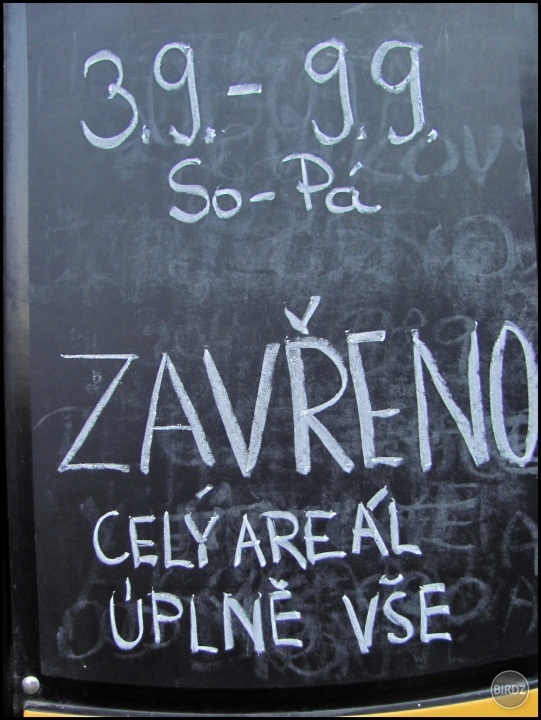 3.9.- 9.9.
So-Pá
ZAVŘENO
CELÝ AREÁL
ÚPLNĚ VŠE
BIRDZ